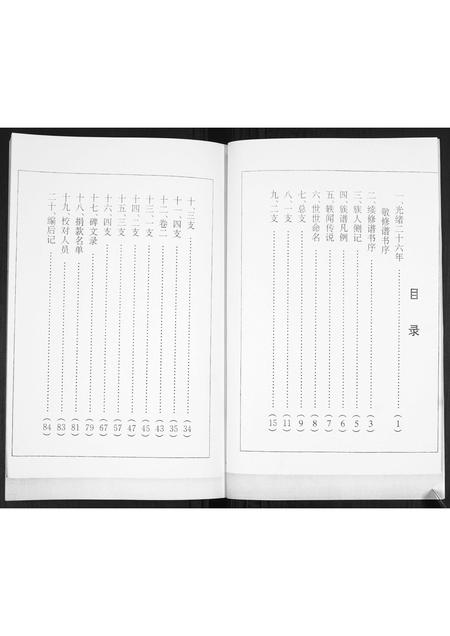 目录
一、光绪二十六年
敬修谱书序……(1)
二、续修谱书序……(3)
三、族人侧记……(5)
四、族谱凡例……(6)
五、轶闻传说……(7)
六、世世命名……(8)
七、总支……(9)
八、一支……(11)
九、二支……(15)
十、三支……(34)
十一、四支……(35)
十二、卷二……(43)
十三、一支……(45)
十四、二支……(47)
十五、三支……(57)
十六、四支……(67)
十七、碑文录……(79)
十八、捐款名单……(81)
十九、校对人员……(83)
二十、编后记……(84)